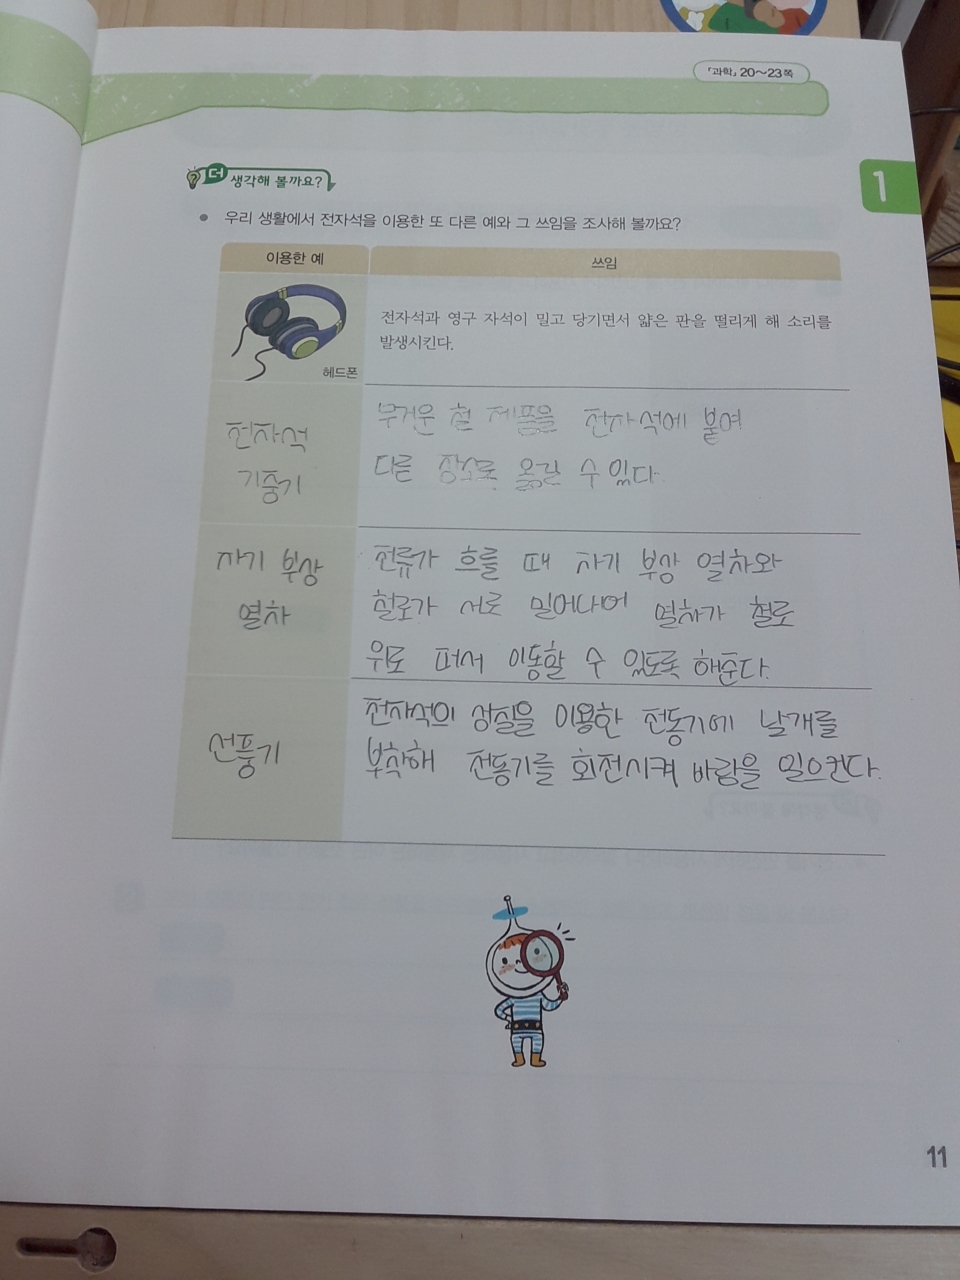 「과학」 20~23쪽
더 생각해 볼까요?
1
우리 생활에서 전자석을 이용한 또 다른 예와 그 쓰임을 조사해 볼까요?
이용한 예
쓰임
전자석과 영구 자석이 밀고 당기면서 얇은 판을 떨리게 해 소리를
발생시킨다.
헤드폰
전자석
기중기
무거운 철 제품을 전자석에 붙여
다른 장소로 옮길 수 있다.
자기 부상
열차
전류가 흐를 때 자기 부상 열차와
철로가 서로 밀어나어 열차가 철로
위로 떠서 이동할 수 있도록 해준다.
선풍기
전자석의 성질을 이용한 전동기에 날개를
부착해 전동기를 회전시켜 바람을 일으킨다.
11